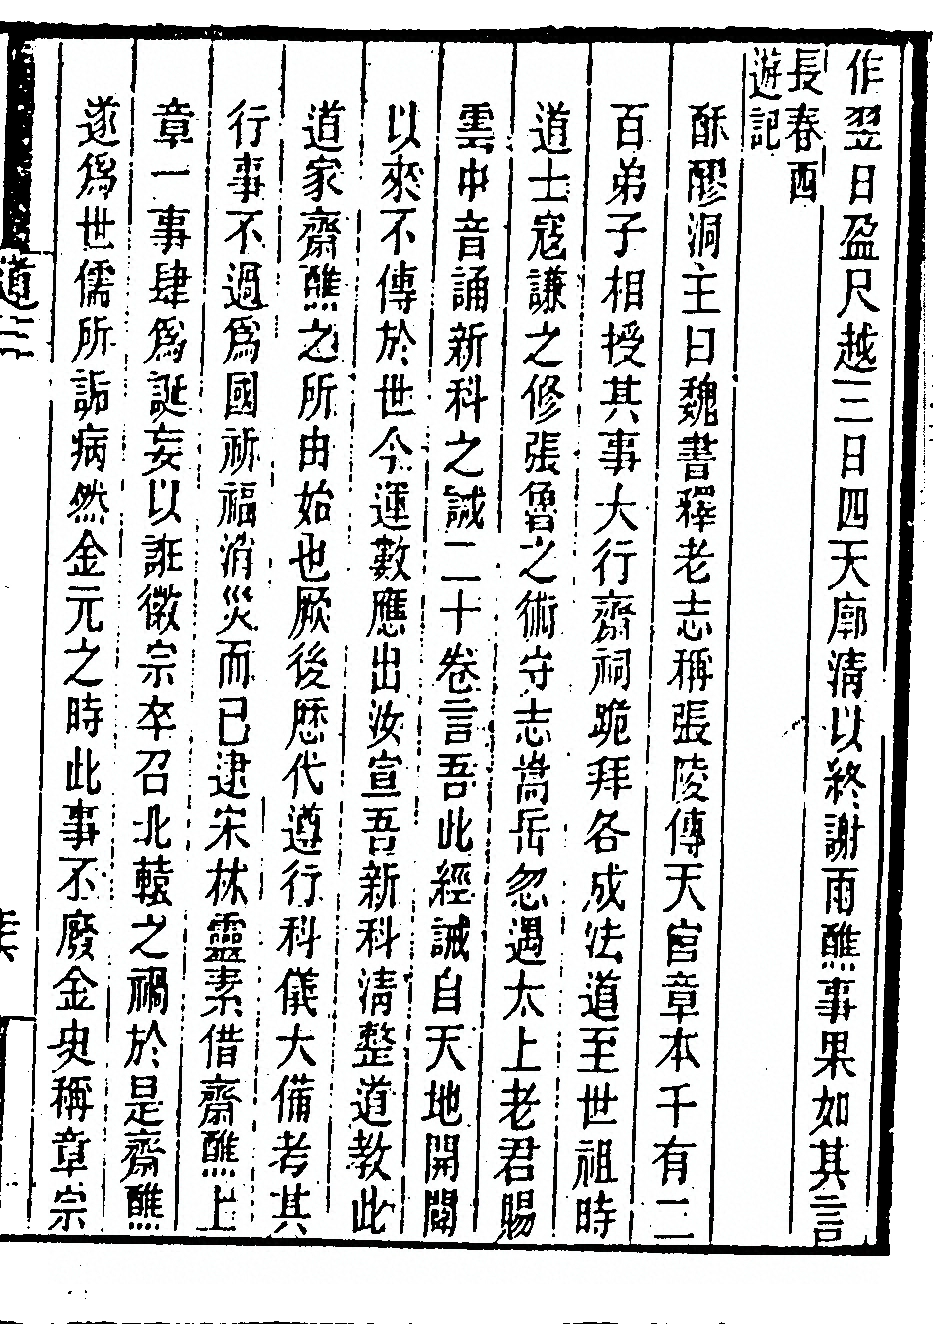 作翌日盈尺越三日四天廓清以終謝雨醮事果如其言
長春西
遊記
酥醪洞主曰魏書釋老志稱張陵傳天官章本千有二
百弟子相授其事大行齋祠跪拜各成法道至世祖時
道士寇謙之修張魯之術守志嵩岳忽遇太上老君賜
雲中音誦新科之誡二十卷言吾此經誡自天地開闢
以來不傳於世今運數應出汝宣吾新科清整道教此
道家齋醮之所由始也厥後歷代遵行科儀大備考其
行事不過爲國祈福消災而已逮宋林靈素借齋醮上
章一事肆爲誕妄以誑徽宗卒召北轅之禍於是齋醮
遂爲世儒所詬病然金元之時此事不廢金史稱章宗
道二